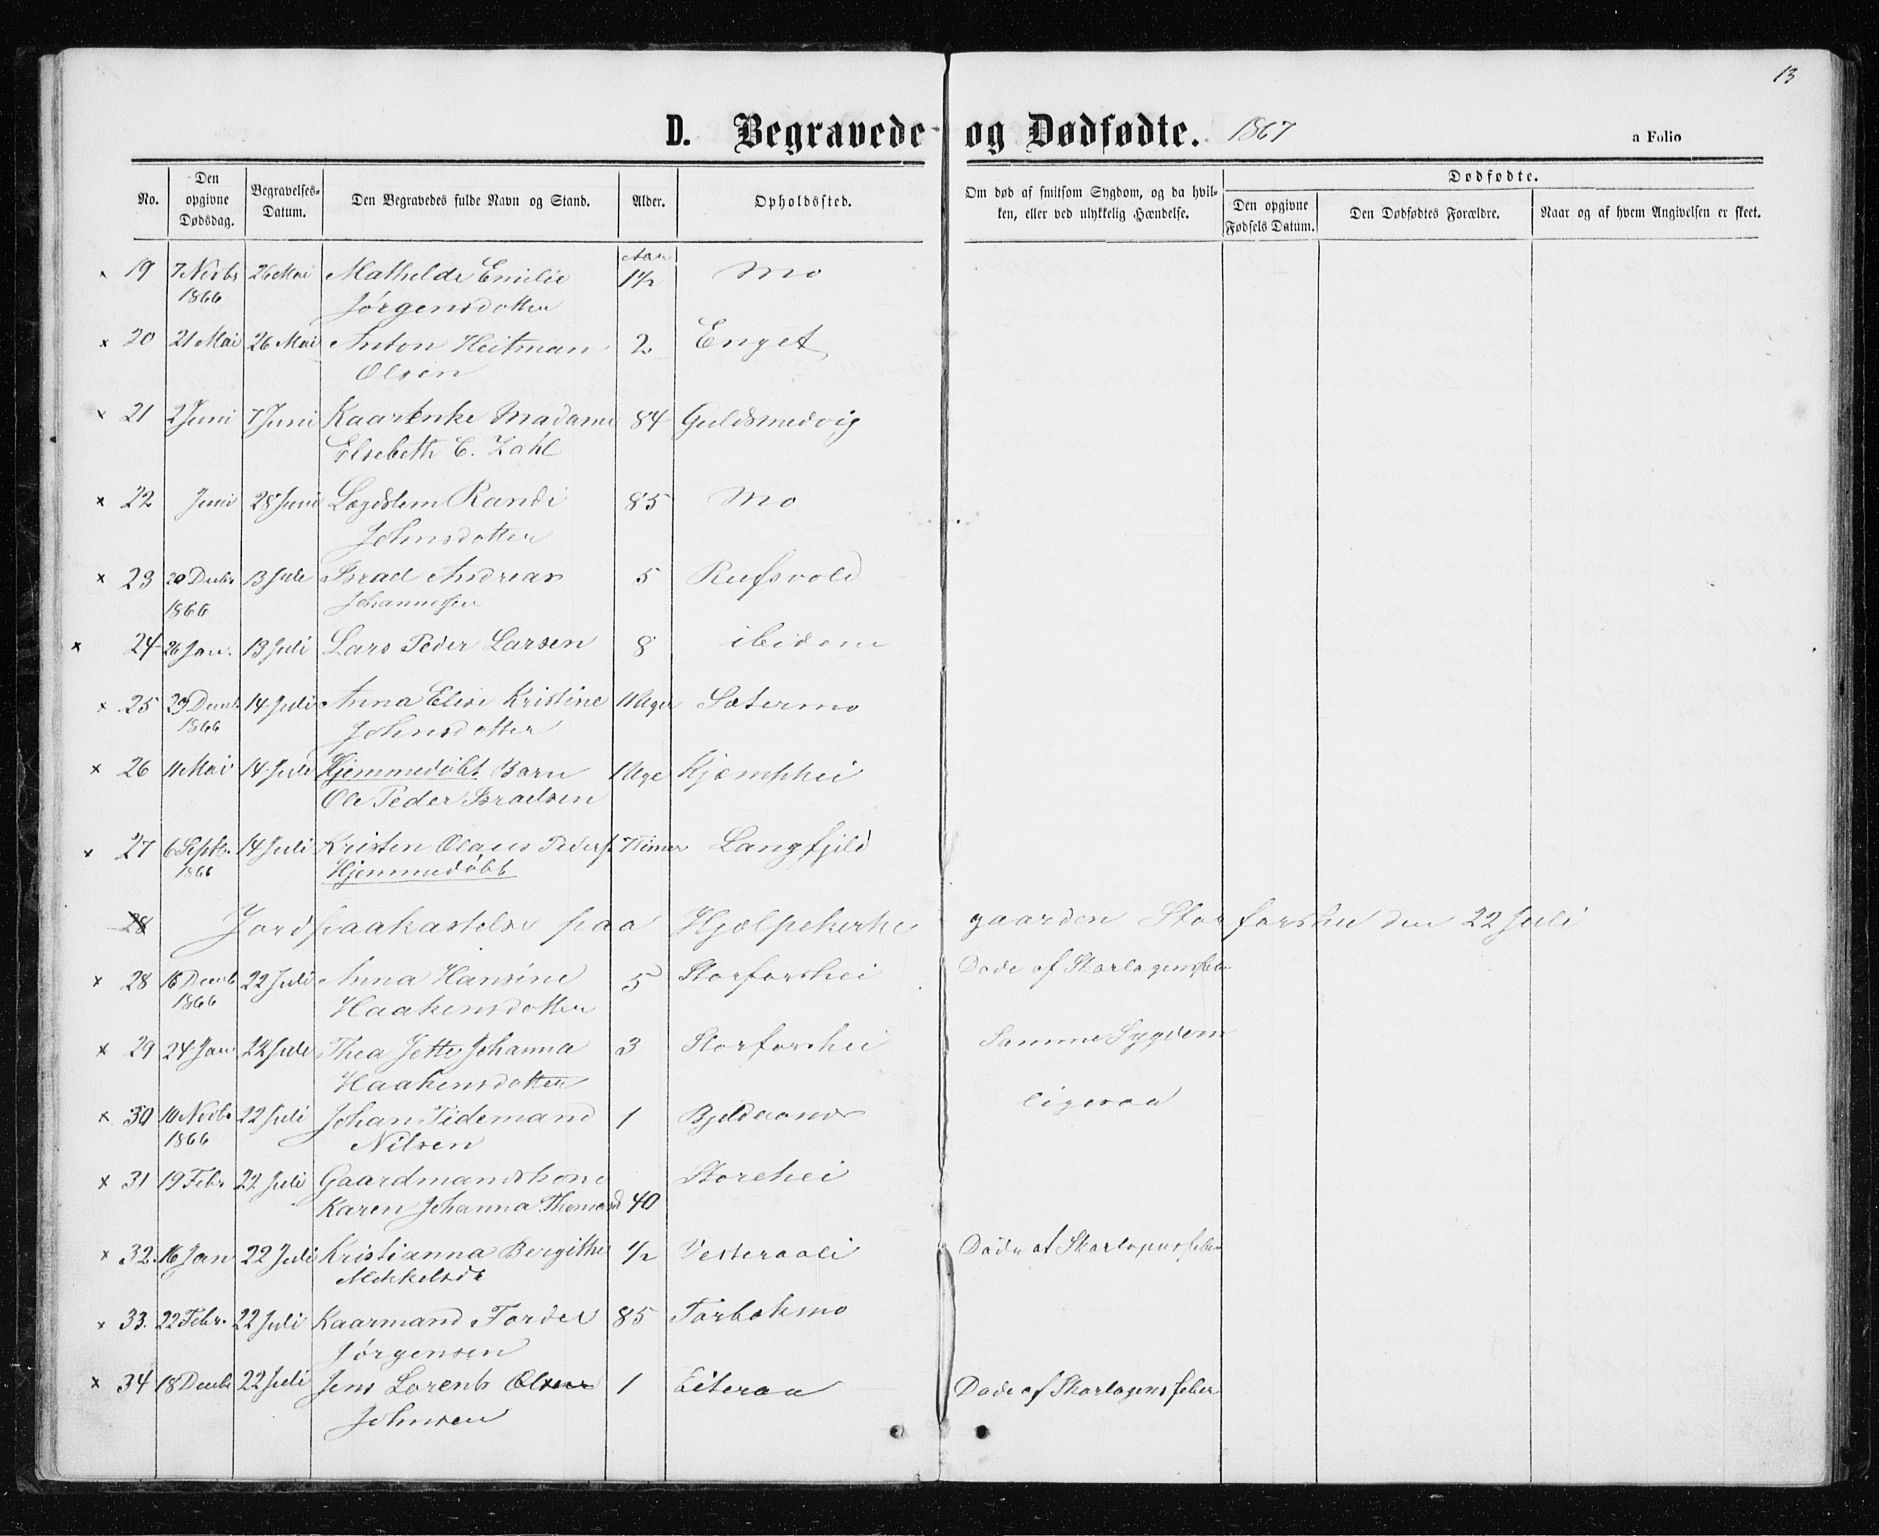 13
D. Begravede og Dødfødte. 1867
a Folio
No.
Den opgivne Dødsdag.
Begravelses-Datum.
Den Begravedes fulde Navn og Stand.
Alder.
Opholdssted.
Om død af smitsom Sygdom, og da hvil-
ken, eller ved ulykkelig Hændelse.
Dødfødte.
Den opgivne Fødsels Datum.
Den Dødfødtes Forældre.
Naar og af hvem Angivelsen er skeet.
Aar
× 19 7 Novbr 26 Mai Mathelde Emilie 1½ Mo
1866 Jørgensdotter
× 20 21 Mai 26 Mai Anton Heitman 2 Enget
Olsen
× 21 2 Juni 7 Juni Kaarenke Madame 84 Guldsmedvig
Elsebeth C. Zahl
× 22 Juni 28 Juni Lægdslem Randi 85 Mo
Johnsdotter
× 23 20 Decbr 13 Juli Israel Andreas 5 Rufsvold
1866 Johannessen
× 24 26 Jan. 13 Juli Lars Peder Larsen 8 ibidem
× 25 29 Decbr 14 Juli Anna Elise Kristine 11 Uger Sætermo
1866 Johnsdotter
× 26 11 Mai 14 Juli Hjemmedøbt Barn 1 Uge Kjæmphei
Ole Peder Israelsen
× 27 6 Septb. 14 Juli Kristen Olaus Peders. Timer Langfjeld
1866 Hjemmedøbt
28 Jordpaakastelse paa Hjælpekirke gaarden Storforshei den 22 Juli
× 28 16 Decmb 22 Juli Anna Hansine 5 Storforshei Døde af Skarlagensfeber
1866 Haakensdotter
× 29 24 Jan 22 Juli Thea Jette Johanna 3 Storforshei Samme Sygdom
Haakensdotter
× 30 10 Novbr 22 Juli Johan Tidemand 1 Bjeldaanes ligesaa
1866 Nilsen
× 31 19 Febr 22 Juli Gaardmandskone Storehei
Karen Johanna Thomasd 40
× 32. 16 Jan 22 Juli Kristianna Bergithe ½ Vesteraali Døde af Skarlagensfeber
Mikkelsdr
× 33. 22 Febr. 22 Juli Kaarmand Tordel 85 Forbakmo
Jørgensen
× 34 18 Decbr 22 Juli Jens Lorents Olsen 1 Eiteraa Døde af Skarlagensfeber
Johnsen